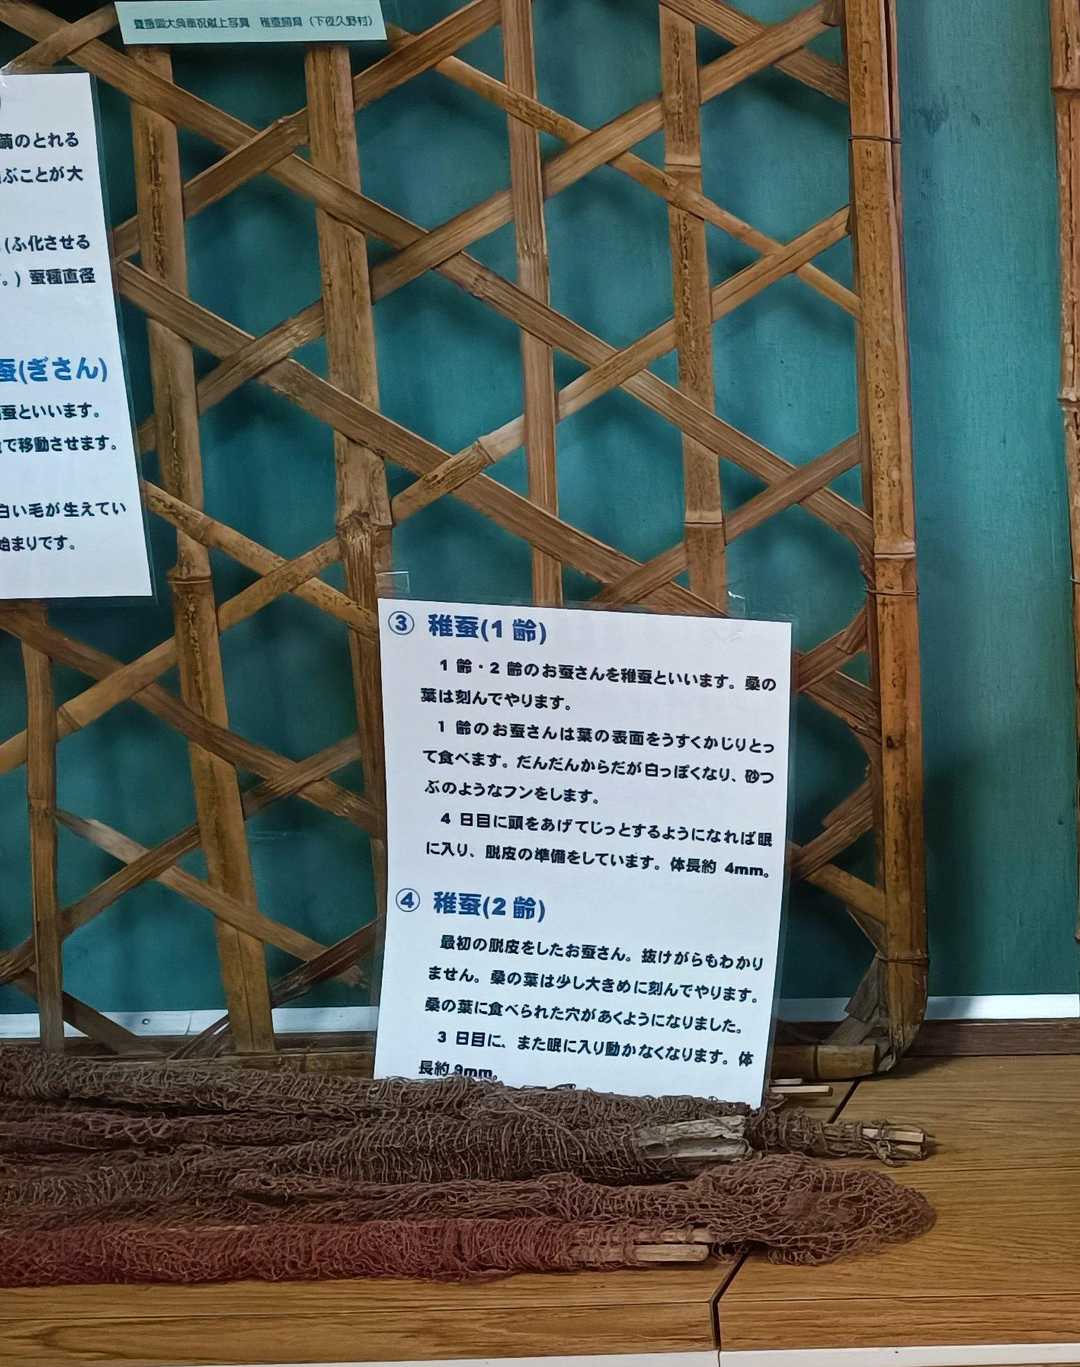 稚蚕飼育(下夜久野村)
繭のとれる
ぶことが大
(ふ化させる
。)蚕種直径
蚕(ぎさん)
蚕といいます。
で移動させます。
白い毛が生えてい
始まりです。
③ 稚蚕(1齢)
1齢・2齢のお蚕さんを稚蚕といいます。桑の
葉は刻んでやります。
1齢のお蚕さんは葉の表面をうすくかじりとっ
て食べます。だんだんからだが白っぽくなり、砂つ
ぶのようなフンをします。
4日目に頭をあげてじっとするようになれば眠
に入り、脱皮の準備をしています。体長約4mm。
④ 稚蚕(2齢)
最初の脱皮をしたお蚕さん。抜けがらもわかり
ません。桑の葉は少し大きめに刻んでやります。
桑の葉に食べられた穴があくようになりました。
3日目に、また眠に入り動かなくなります。体
長約9mm。